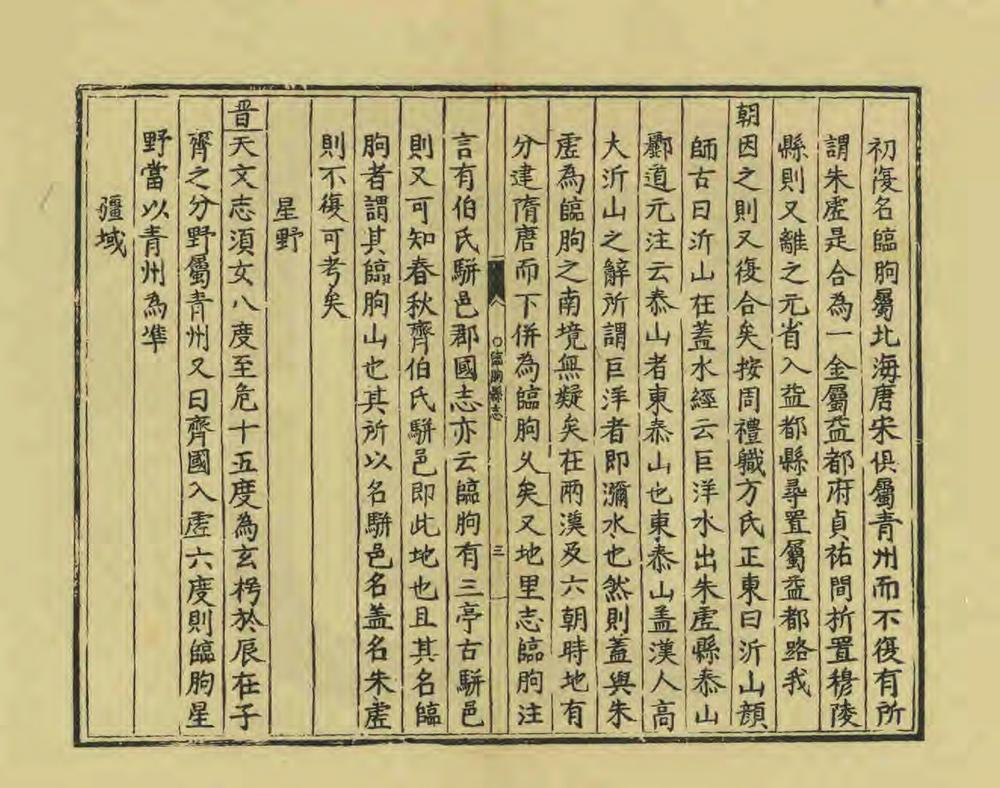 初復名臨朐屬北海唐宋俱屬青州而不復有所
謂朱虛是合為一金屬益都府貞祐間折置穆陵
縣則又離之元省入益都縣尋置屬益都路我
朝因之則又復合矣按周禮職方氏正東曰沂山顏
師古曰沂山在蓋水經云巨洋水出朱虛縣泰山
酈道元注云泰山者東泰山也東泰山盖漢人高
大沂山之辭所謂巨洋者即瀰水也然則蓋與朱
虛為臨朐之南境無疑矣在兩漢及六朝時地有
分建隋唐而下併為臨朐乆矣又地里志臨朐注
○臨朐縣志
三
言有伯氏駢邑郡國志亦云臨朐有三亭古駢邑
則又可知春秋齊伯氏駢邑即此地也且其名臨
朐者謂其臨朐山也其所以名駢邑名盖名朱虛
則不復可考矣
星野
晋天文志須女八度至危十五度為玄枵於辰在子
齊之分野屬青州又曰齊國入虛六度則臨朐星
野當以青州為準
疆域